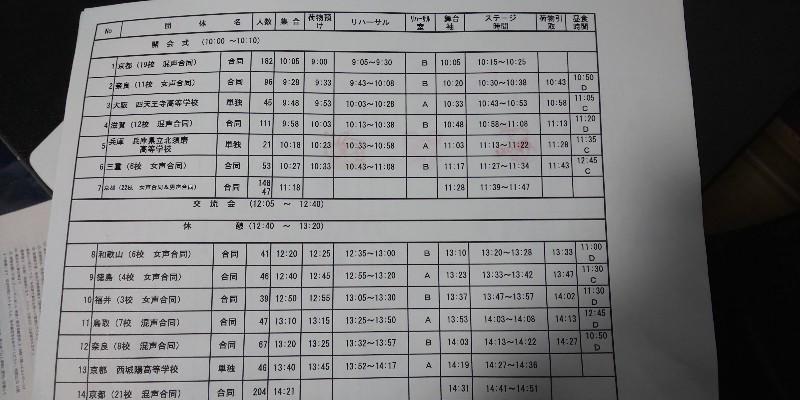 No 団体名 人数 集合 荷物預け リハーサル リハーサル室 舞台袖 ステージ時間 荷物引取 昼食時間
開会式 (10:00 ～10:10)
1 京都 (19校 混声合同) 合同 182 10:05 9:00 9:05～9:30 B 10:05 10:15～10:25
2 奈良 (11校 女声合同) 合同 96 9:28 9:33 9:43～10:08 B 10:20 10:30～10:38 10:43 10:50 D
3 大阪 四天王寺高等学校 単独 45 9:48 9:53 10:03～10:28 A 10:33 10:43～10:53 10:58 11:05 C
4 滋賀 (12校 混声合同) 合同 111 9:58 10:03 10:13～10:38 B 10:48 10:58～11:08 11:13 11:20 D
5 兵庫 兵庫県立北須磨高等学校 単独 21 10:18 10:23 10:33～10:58 A 11:03 11:13～11:22 11:28 11:35 C
6 三重 (6校 女声合同) 合同 53 10:27 10:33 10:43～11:08 B 11:17 11:27～11:34 11:43 12:45 C
7 京都 (22校 女声合同&男声合同) 合同 148 47 11:18 11:28 11:39～11:47
交流会 (12:05 ～ 12:40)
休憩 (12:40 ～ 13:20)
8 和歌山 (6校 女声合同) 合同 41 12:20 12:25 12:35～13:00 B 13:10 13:20～13:28 13:33 11:00 D
9 徳島 (4校 女声合同) 合同 46 12:40 12:45 12:55～13:20 A 13:23 13:33～13:42 13:47 11:30 C
10 福井 (3校 女声合同) 合同 39 12:50 12:55 13:05～13:30 B 13:37 13:47～13:57 14:02 11:30 D
11 鳥取 (7校 混声合同) 合同 47 13:10 13:15 13:25～13:50 A 13:53 14:03～14:08 14:13 12:45 D
12 奈良 (8校 混声合同) 合同 67 13:20 13:25 13:32～13:57 B 14:03 14:13～14:22 14:27 10:50 D
13 京都 西城陽高等学校 単独 46 13:40 13:45 13:52～14:17 A 14:19 14:27～14:36
14 京都 (21校 混声合同) 合同 204 14:21 14:31 14:41～14:51